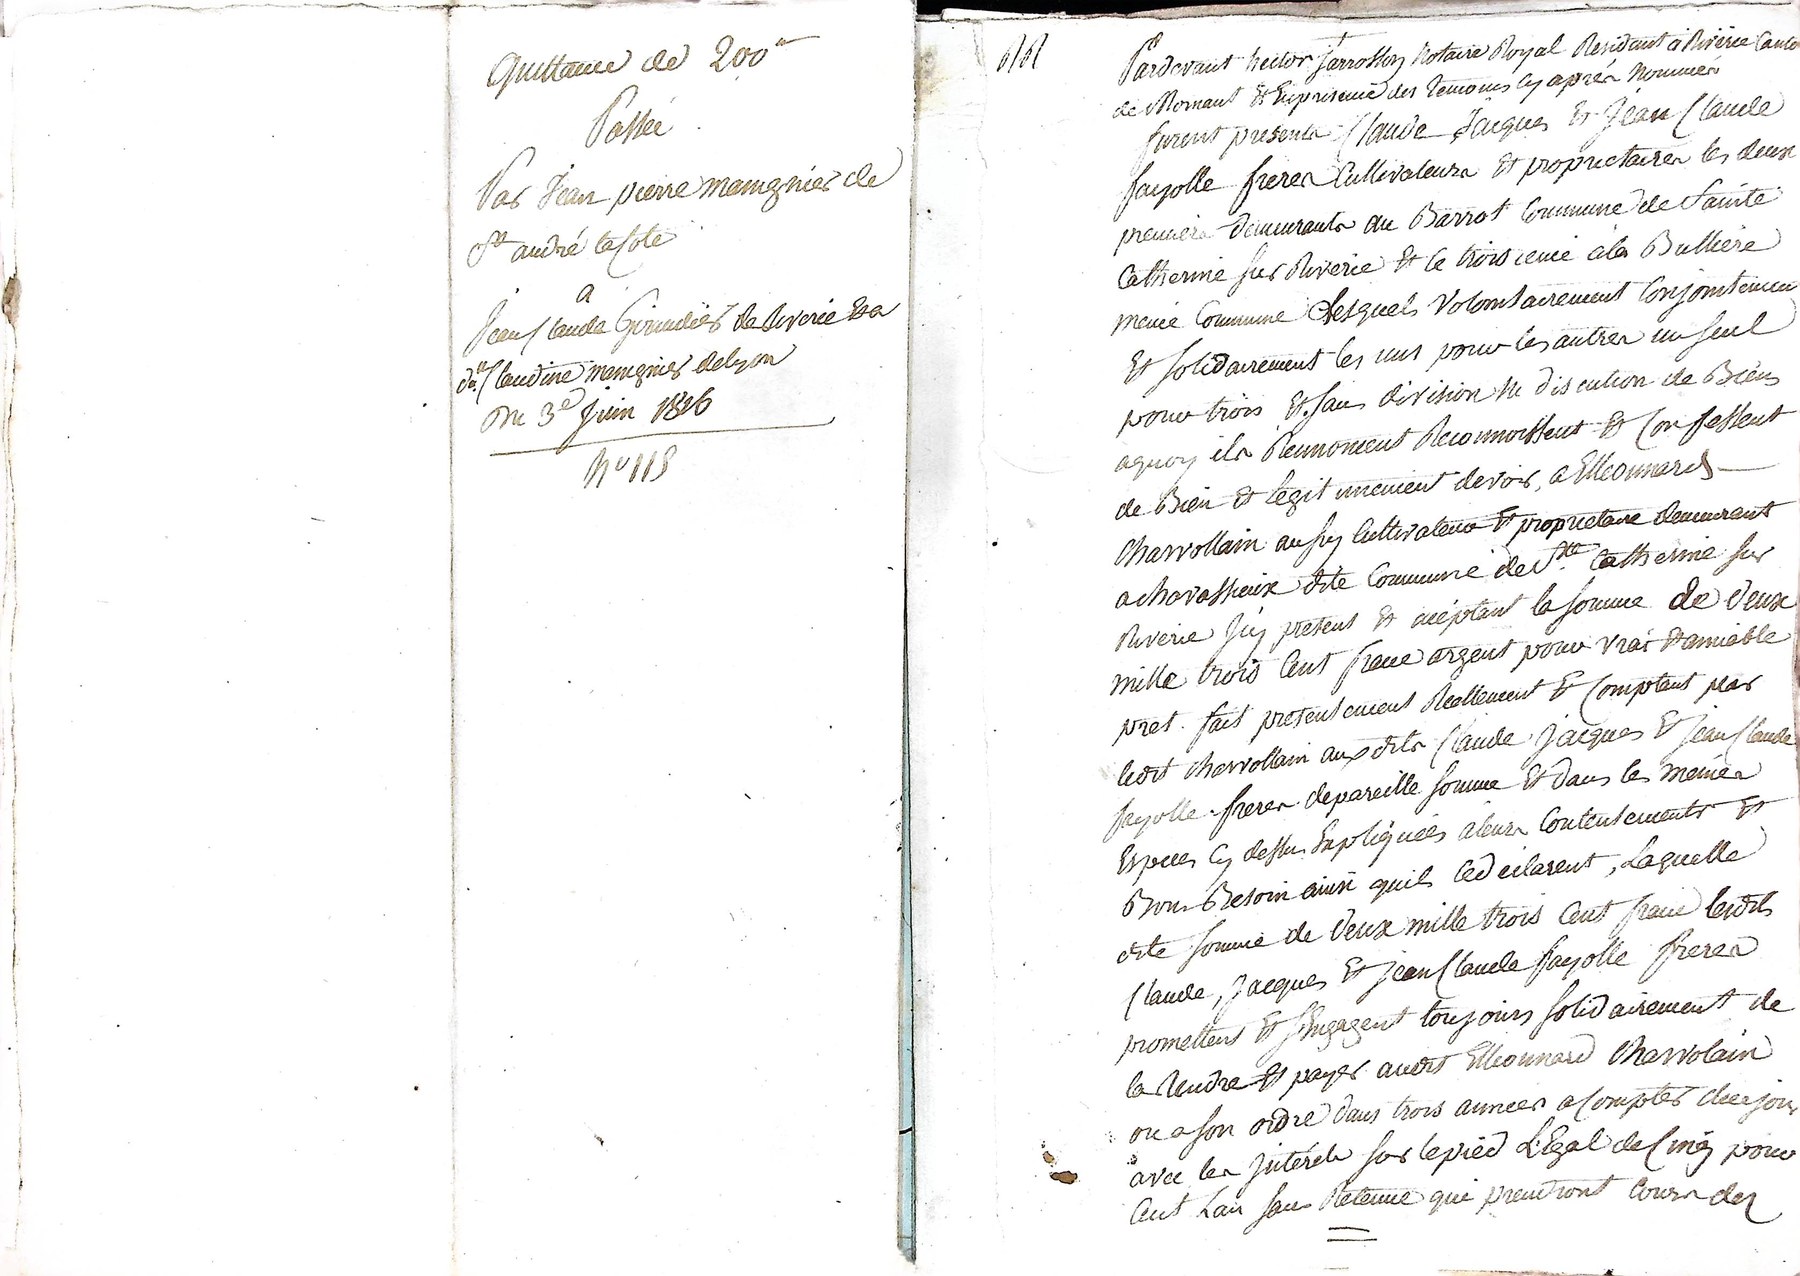 Quittance de 200
Passée
Par Jean pierre mamgnier de
St andré la Cote
a
Jean Claude Grimdier de Riverie Et a
Claudine mamgnier de Lyon
Du 3e Juin 1816
No 115
Pardevant hector jarrosson Notaire Royal Residant à Riverie Canton
de Mornant Et En presence des Temoins Cy après Nommés
furent presents Claude, Jacques Et Jean Claude
fayolle freres Cultivateurs Et proprietaires les deux
premiers demeurants au Barrot Commune de Sainte
Catherine sur Riverie Et le troisieme à la Bulliere
meme Commune Lesquels Volontairement Conjointement
Et Solidairement les uns pour les autres un seul
pour trois Et sans division ni discution de Biens
aquoy ils Renoncent Reconnoissent Et Confessent
de Bien Et Legitimement devoir, a Ettiennard
Charvollain aussy Cultivateur Et proprietaire demeurant
a Chavassieux dite Commune de Ste Catherine sur
Riverie Jcy present Et aceptant la somme de Deux
mille trois Cent franc argent pour vrai Et amiable
pret fait presentement Reellement Et Comptant par
ledit Charvollain aux dits Claude Jacques Et Jean Claude
fayolle freres de pareille somme Et dans les memes
Especes Cy dessus Expliquées à leurs Contentements Et
Bons Besoin ainsi quils le declarent, Laquelle
dite somme de Deux mille trois Cent franc lesdits
Claude, Jacques Et jean Claude fayolle freres
promettent Et sEngagent toujours solidairement de
la Rendre Et payer audit Ettiennard Charvolain
ou a son ordre dans trois années a Compter de ce jour
avec les jnterets sur le pied Légal de Cinq pour
Cent Lan sans Retenue qui prendront Cours des